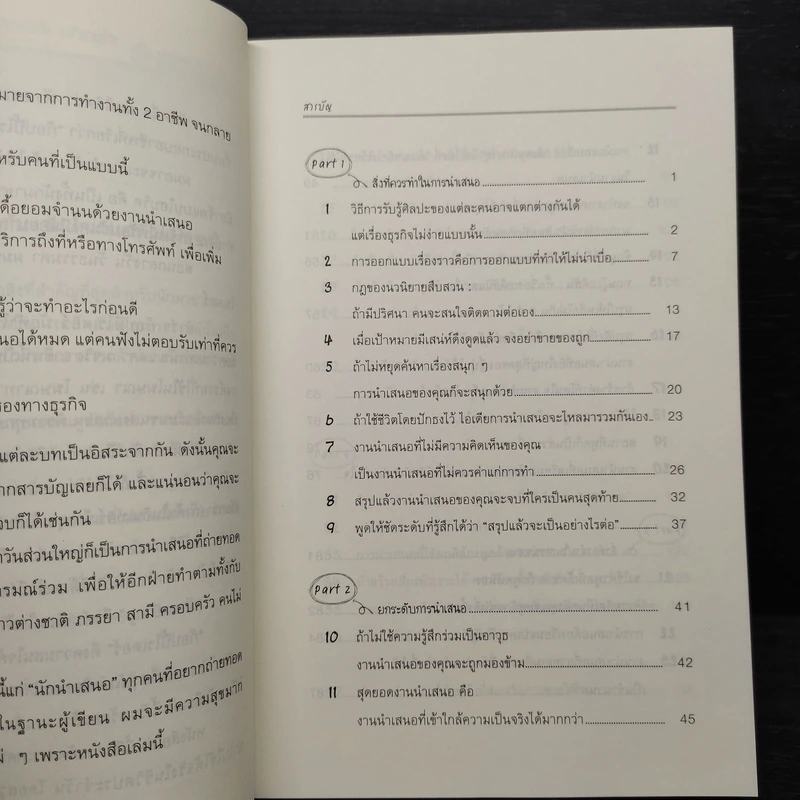 มายจากการทำงานทั้ง 2 อาชีพ จนกลาย
หรับคนที่เป็นแบบนี้
ดื้อยอมจำนนด้วยงานนำเสนอ
ริการถึงที่หรือทางโทรศัพท์ เพื่อเพิ่ม
รู้ว่าจะทำอะไรก่อนดี
นอได้หมด แต่คนฟังไม่ตอบรับเท่าที่ควร
ของทางธุรกิจ
แต่ละบทเป็นอิสระจากกัน ดังนั้นคุณจะ
ากสารบัญเลยก็ได้ และแน่นอนว่าคุณจะ
จบก็ได้เช่นกัน
าวันส่วนใหญ่ก็เป็นการนำเสนอที่ถ่ายทอด
ารมณ์ร่วม เพื่อให้อีกฝ่ายทำตามทั้งกับ
าวต่างชาติ ภรรยา สามี ครอบครัว คนไม่
นี้แก่ "นักนำเสนอ" ทุกคนที่อยากถ่ายทอด
ในฐานะผู้เขียน ผมจะมีความสุขมาก
ๆ เพราะหนังสือเล่มนี้
สารบัญ
Part 1
สิ่งที่ควรทำในการนำเสนอ 1
1 วิธีการรับรู้ศิลปะของแต่ละคนอาจแตกต่างกันได้
แต่เรื่องธุรกิจไม่ง่ายแบบนั้น 2
2 การออกแบบเรื่องราวคือการออกแบบที่ทำให้ไม่น่าเบื่อ 7
3 กฎของนวนิยายสืบสวน :
ถ้ามีปริศนา คนจะสนใจติดตามต่อเอง 13
4 เมื่อเป้าหมายมีเสน่ห์ดึงดูดแล้ว จงอย่าขายของถูก 17
5 ถ้าไม่หยุดค้นหาเรื่องสนุก ๆ
การนำเสนอของคุณก็จะสนุกด้วย 20
6 ถ้าใช้ชีวิตโดยปักธงไว้ ไอเดียการนำเสนอจะไหลมารวมกันเอง.. 23
7 งานนำเสนอที่ไม่มีความคิดเห็นของคุณ
เป็นงานนำเสนอที่ไม่ควรค่าแก่การทำ 26
8 สรุปแล้วงานนำเสนอของคุณจะจบที่ใครเป็นคนสุดท้าย 32
9 พูดให้ชัดระดับที่รู้สึกได้ว่า "สรุปแล้วจะเป็นอย่างไรต่อ" 37
Part 2
ยกระดับการนำเสนอ 41
10 ถ้าไม่ใช้ความรู้สึกร่วมเป็นอาวุธ
งานนำเสนอของคุณจะถูกมองข้าม 42
11 สุดยอดงานนำเสนอ คือ
งานนำเสนอที่เข้าใกล้ความเป็นจริงได้มากกว่า 45